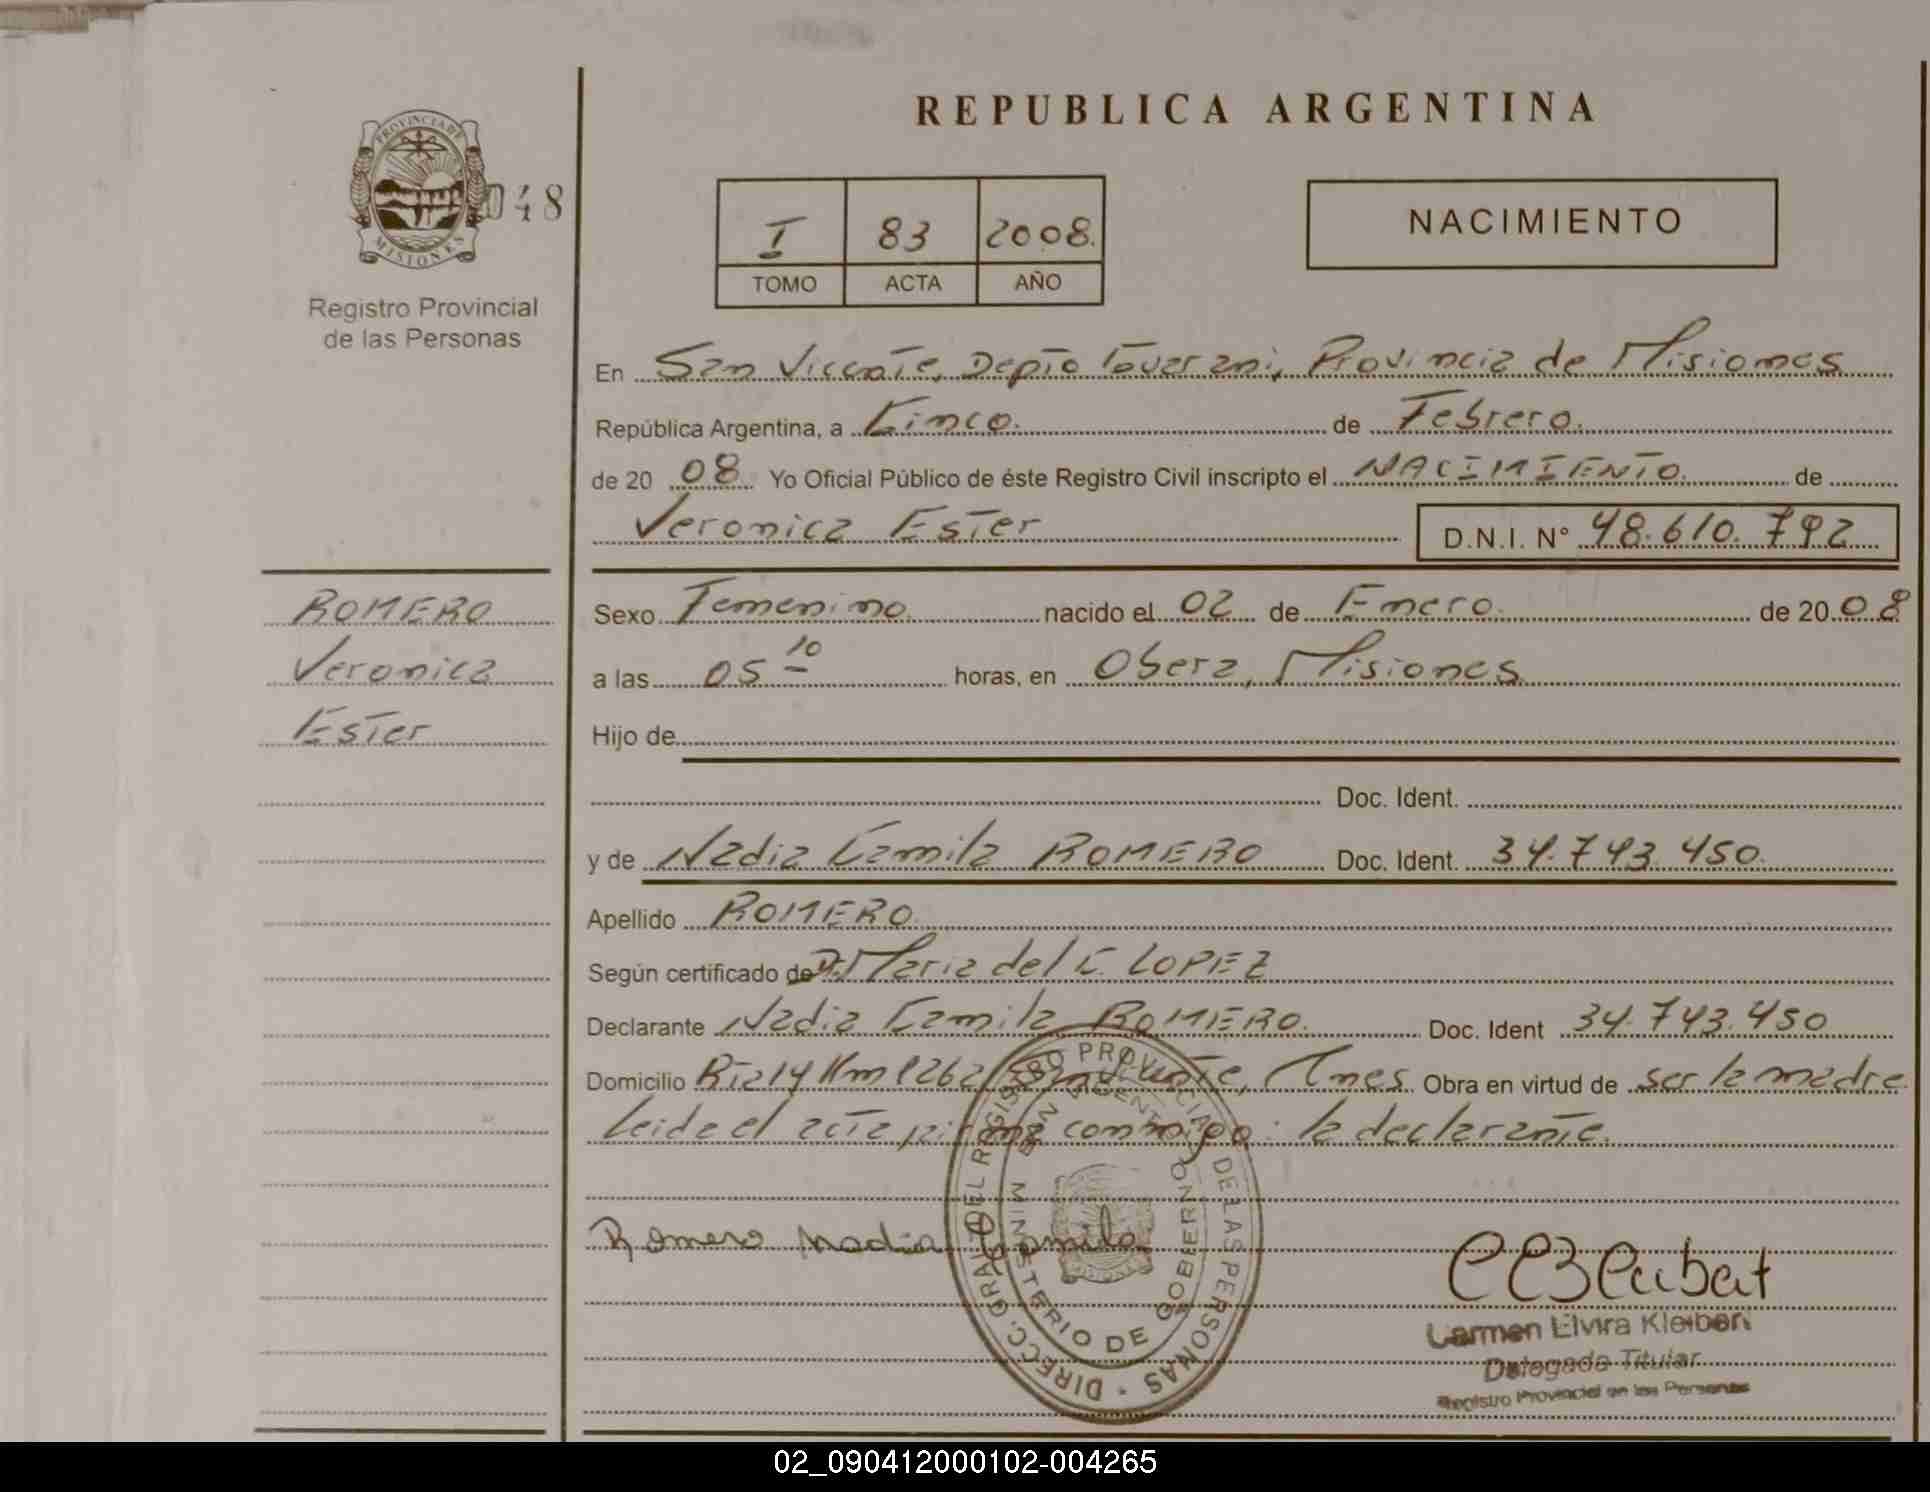 REPUBLICA ARGENTINA
PROVINCIA DE
MISIONES
048
Registro Provincial
de las Personas
I 83 2008.
TOMO ACTA AÑO
NACIMIENTO
En San Vicente, Depto Guarani, Provincia de Misiones
República Argentina, a Cinco. de Febrero.
de 20 08. Yo Oficial Público de éste Registro Civil inscripto el NACIMIENTO. de
Veronica Ester D.N.I. N° 48.610.792
ROMERO
Veronica
Ester
Sexo Femenino. nacido el 02 de Enero. de 20 08
a las 05 10 horas, en Obera, Misiones.
Hijo de
Doc. Ident.
y de Nadia Camila ROMERO Doc. Ident. 34.743.450.
Apellido ROMERO.
Según certificado de Dr. Maria del C. LOPEZ
Declarante Nadia Camila ROMERO. Doc. Ident 34.743.450
Domicilio Rta 14 Km 1262 San Vicente, Mnes. Obra en virtud de ser la madre
Leida el acta firma conmigo: la declarante.
Romero Nadia Camila
DIRECC. GRAL. DEL REGISTRO PROVINCIAL DE LAS PERSONAS
MINISTERIO DE GOBIERNO
MISIONES
Carmen Elvira Kleibert
Delegada Titular
Registro Provincial de las Personas
02_090412000102-004265